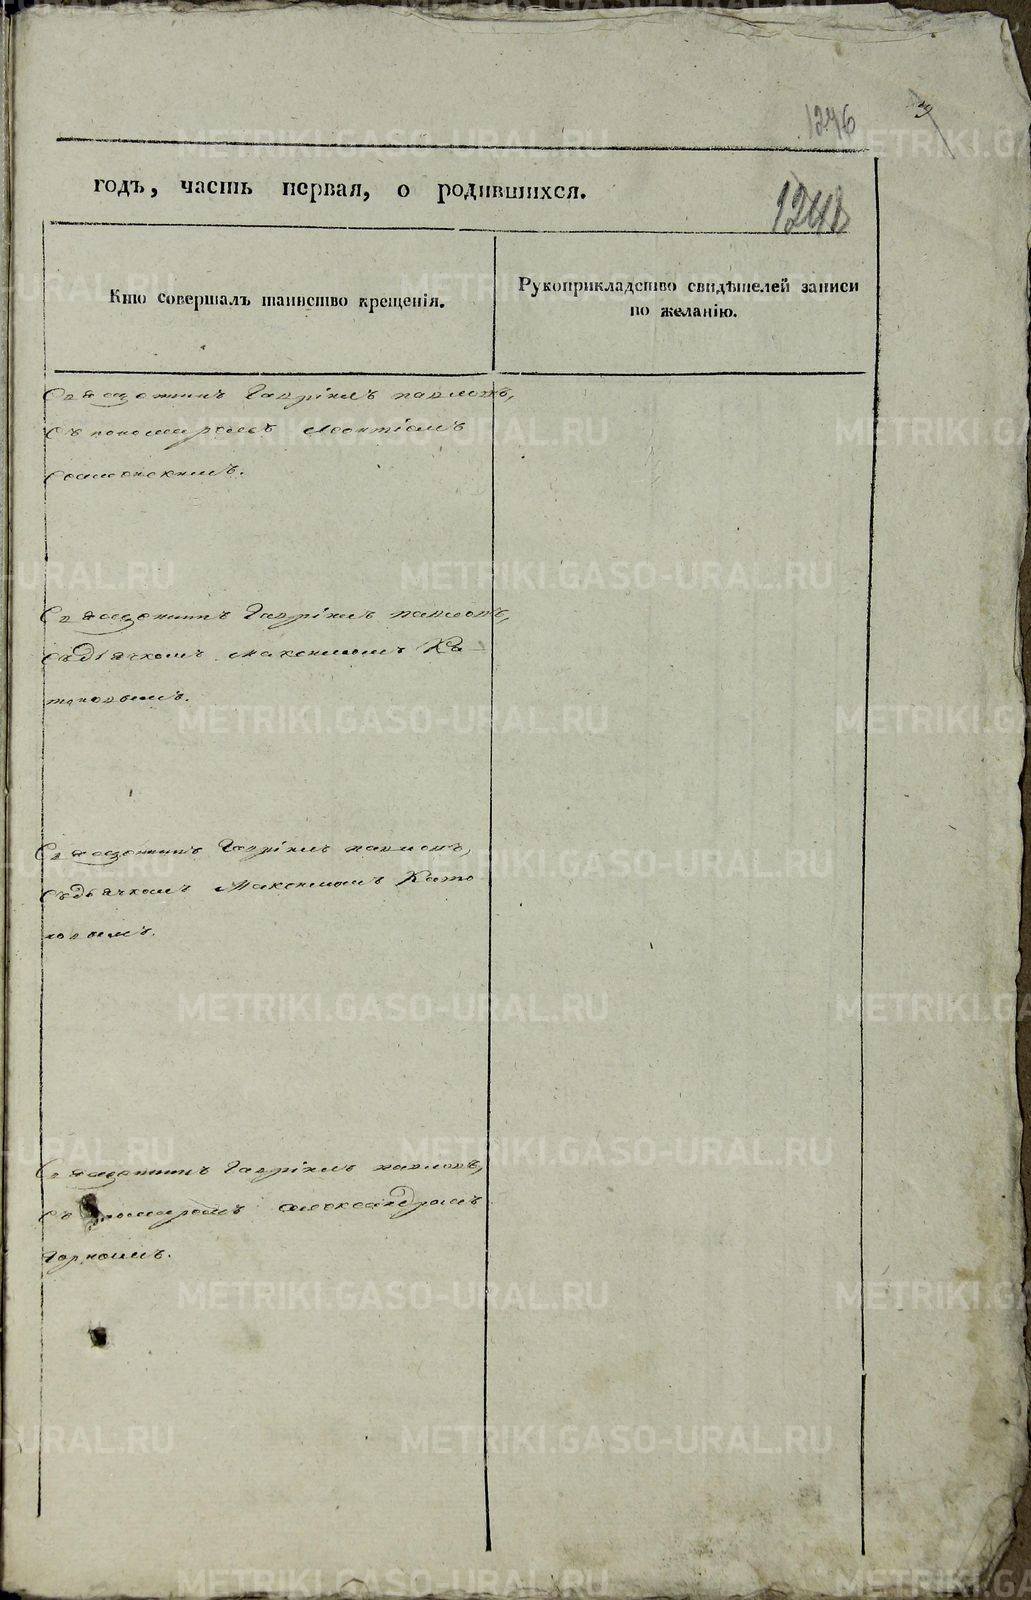 1246
1248
годъ, часть первая, о родившихся.
Кто совершалъ таинство крещенія.
Рукоприкладство свидѣтелей записи
по желанію.
Священникъ Гавріилъ Павловъ,
съ пономаремъ Леонтіемъ
Священникъ Гавріилъ Павловъ,
съ дьячкомъ Максимомъ Ка-
Священникъ Гавріилъ Павловъ,
съ дьячкомъ Максимомъ
Священникъ Гавріилъ Павловъ,
съ пономаремъ Александромъ
METRIKI.GASO-URAL.RU